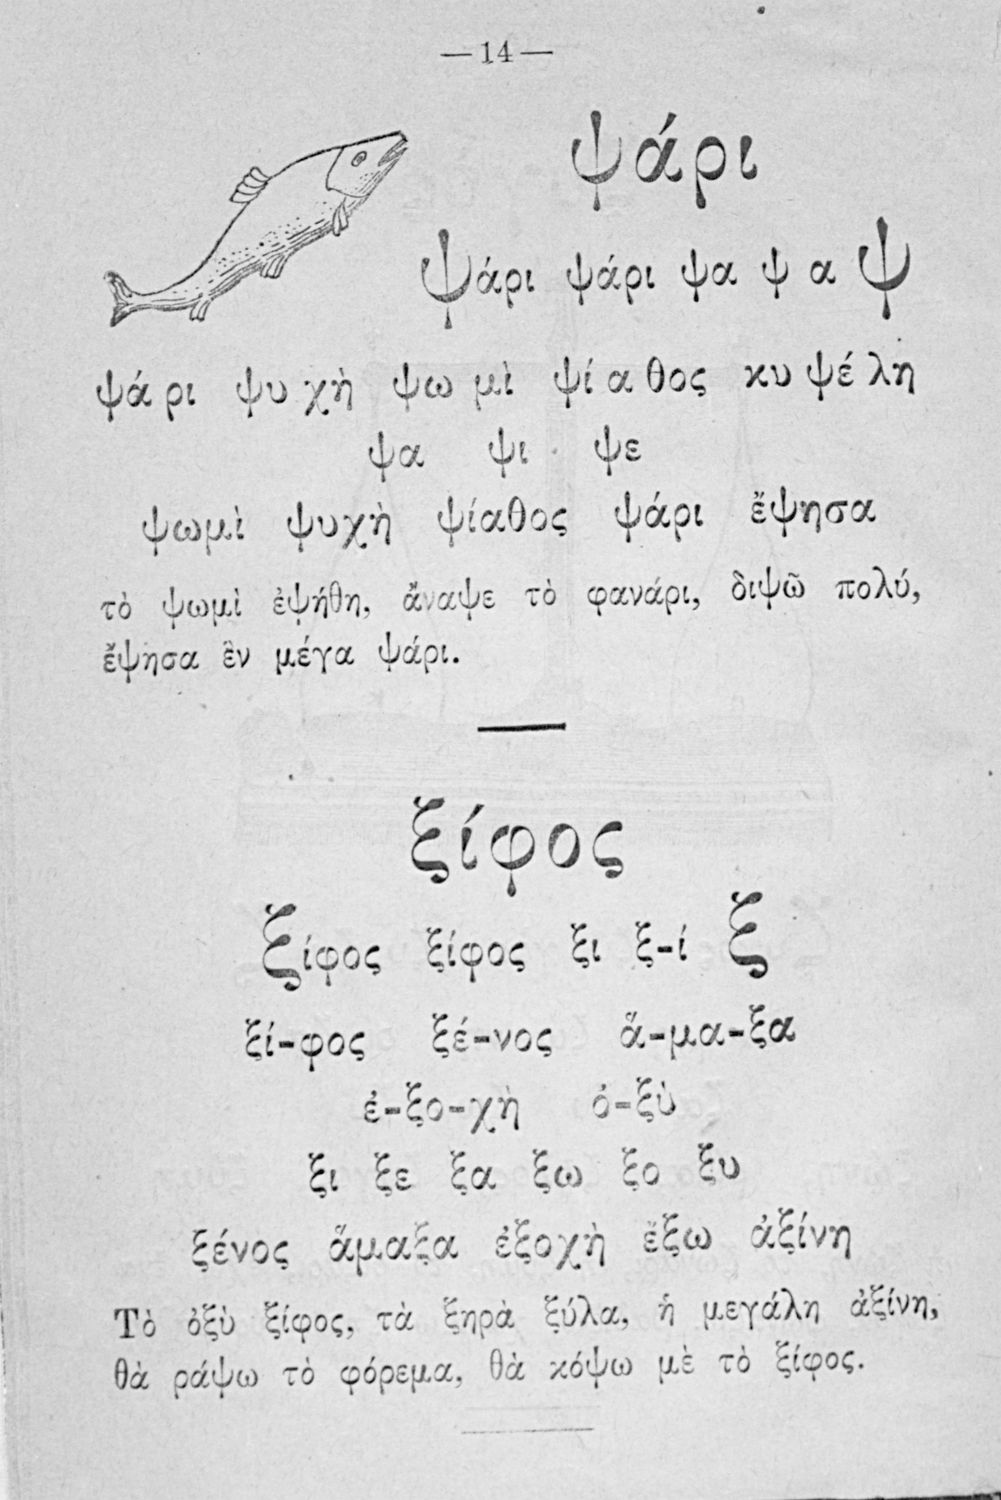 — 14 —
ψάρι
Ψάρι ψάρι ψα ψ α Ψ
ψά ρι ψυ χὴ ψω μὶ ψί α θος κυ ψέ λη
ψα ψι ψε
ψωμὶ ψυχὴ ψίαθος ψάρι ἔψησα
τὸ ψωμὶ ἐψήθη, ἄναψε τὸ φανάρι, διψῶ πολύ,
ἔψησα ἓν μέγα ψάρι.
ξίφος
ξίφος ξίφος ξι ξ-ί ξ
ξί-φος ξέ-νος ἅ-μα-ξα
ἐ-ξο-χὴ ὀ-ξὺ
ξι ξε ξα ξω ξο ξυ
ξένος ἅμαξα ἐξοχὴ ἔξω ἀξίνη
Τὸ ὀξὺ ξίφος, τὰ ξηρὰ ξύλα, ἡ μεγάλη ἀξίνη,
θὰ ράψω τὸ φόρεμα, θὰ κόψω μὲ τὸ ξίφος.